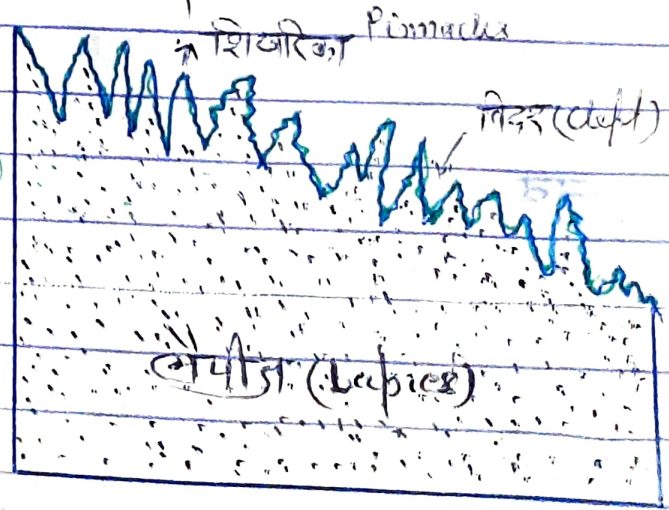 शिखरिका Pinnacles
विदर (cleft)
लैपीज (Lapies)